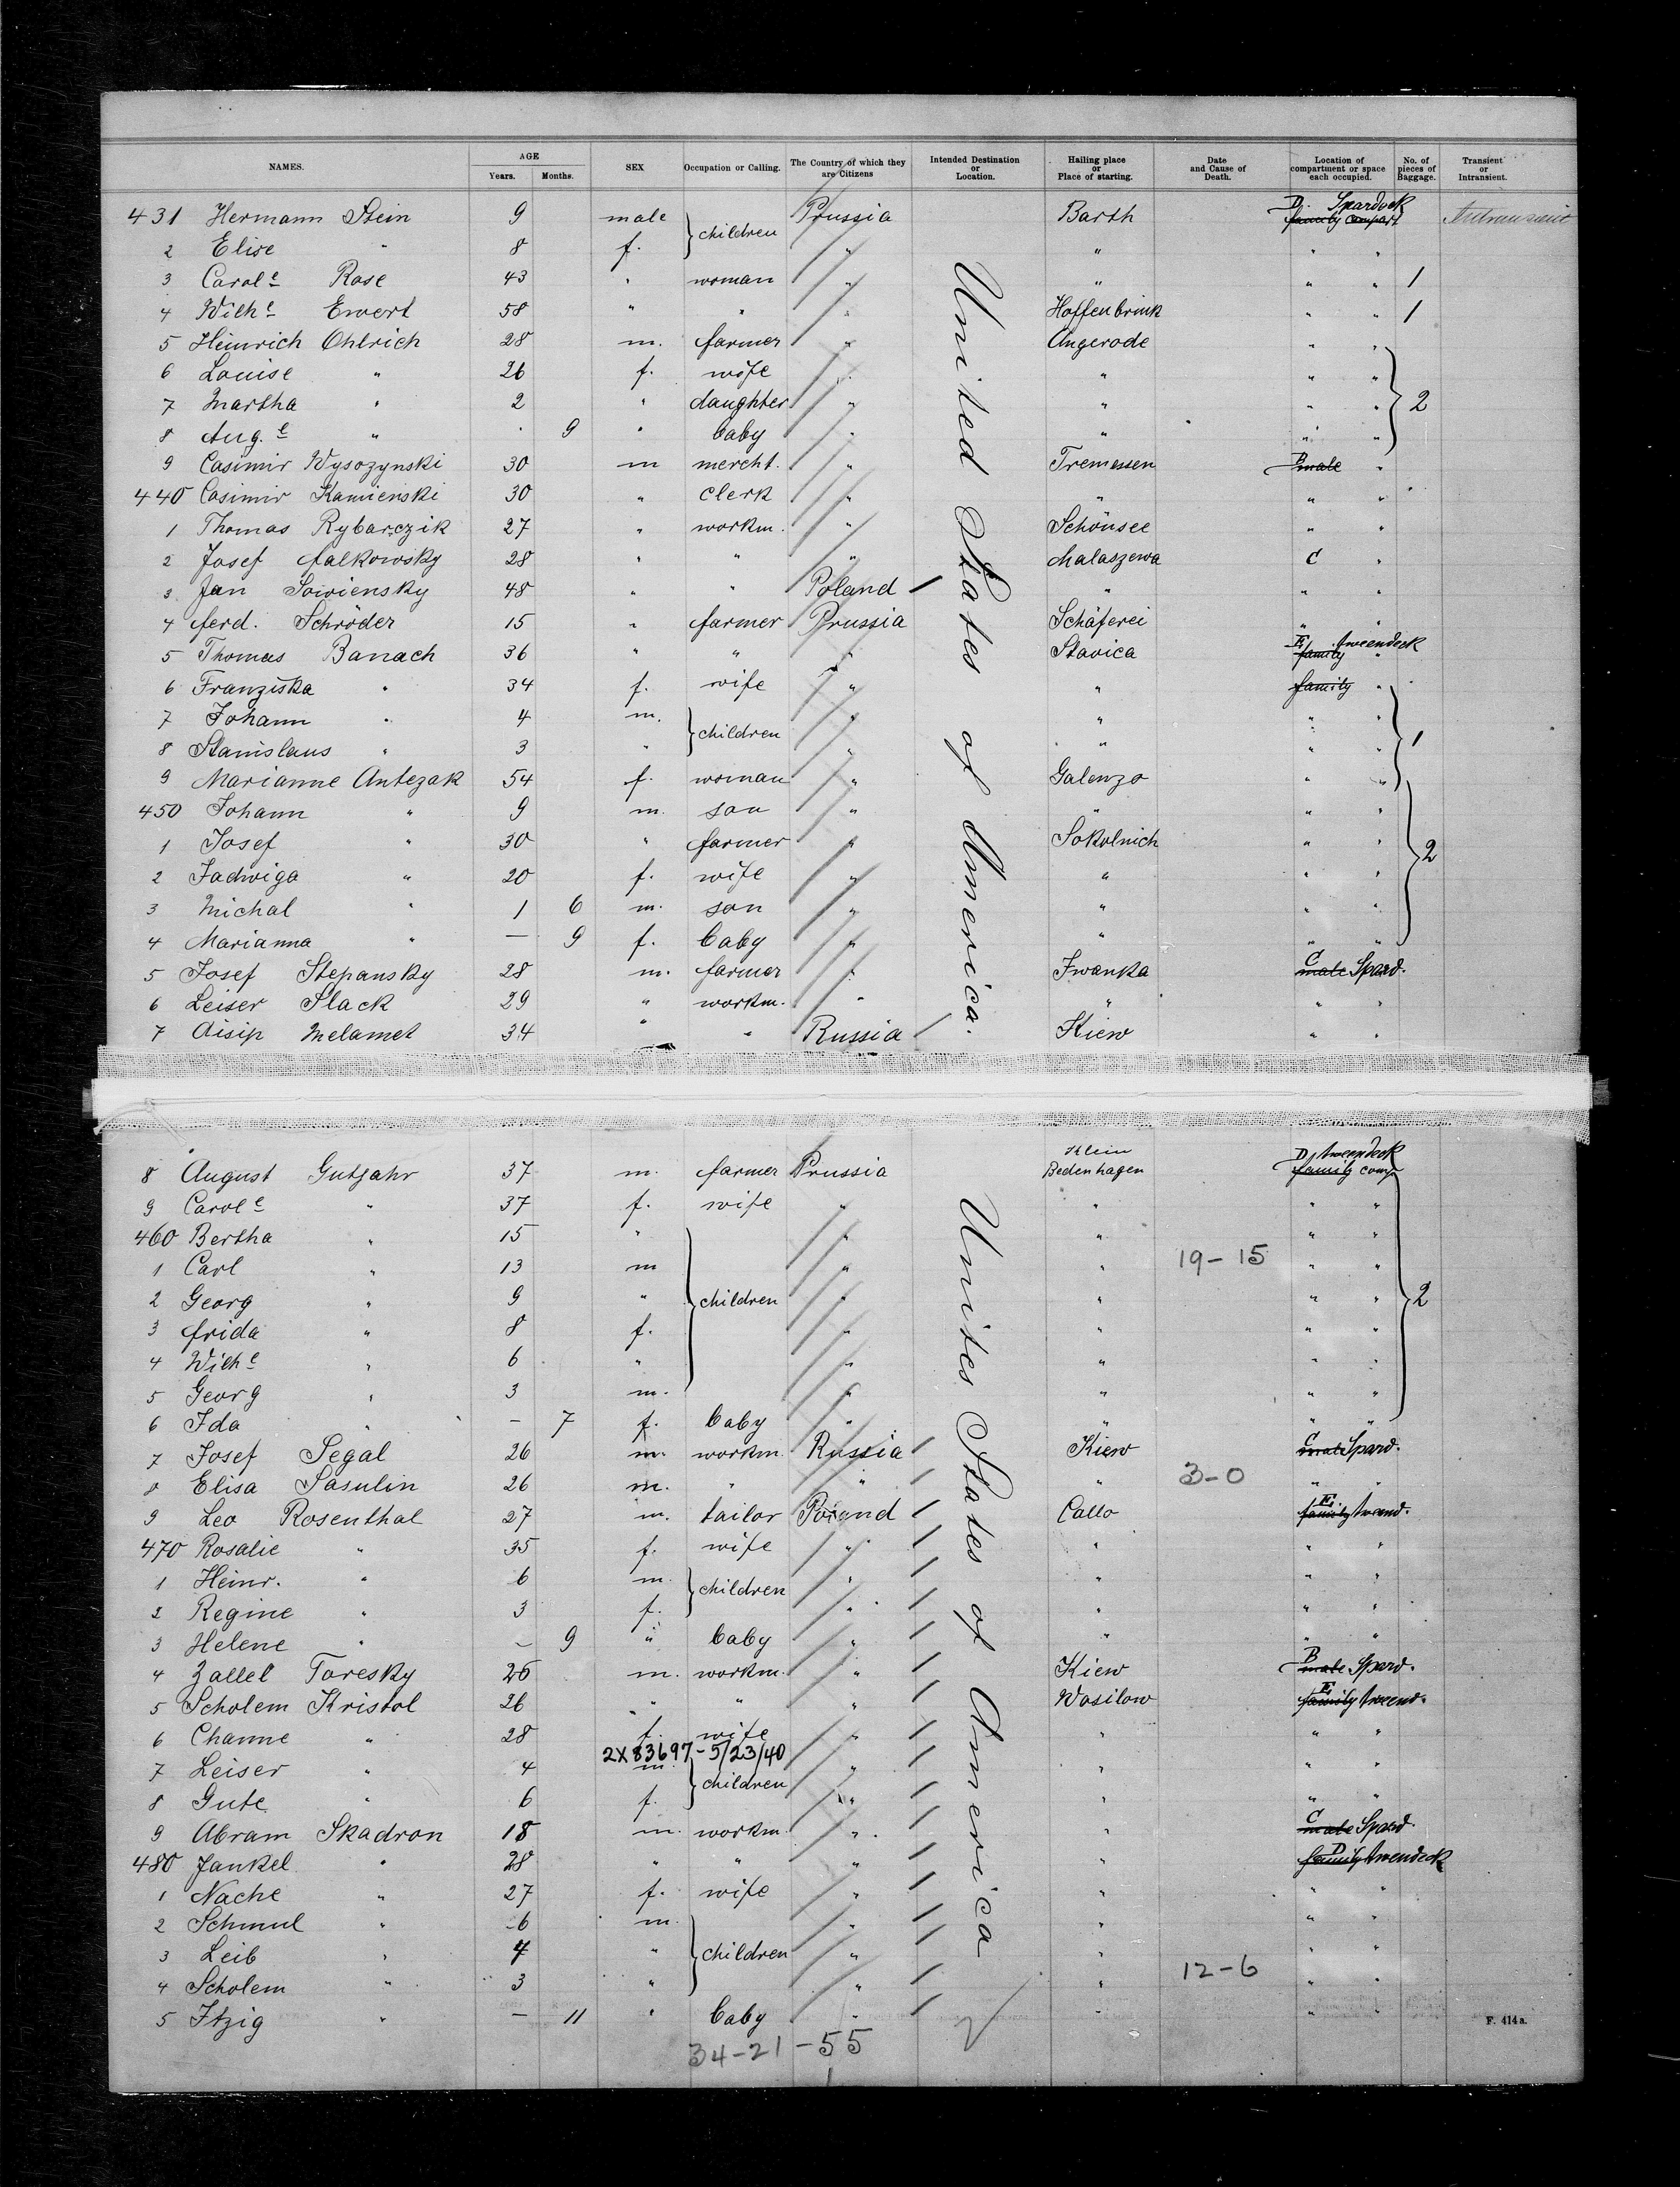 NAMES. AGE Years. Months. SEX Occupation or Calling. The Country of which they are Citizens Intended Destination or Location. Hailing place or Place of starting. Date and Cause of Death. Location of compartment or space each occupied. No. of pieces of Baggage. Transient or Intransient.
431 Hermann Stein 9 male children Prussia Barth D. Spardeck family compart
2 Elise " 8 f. " " " "
3 Carol e Rose 43 " woman " " " " 1
4 Wilh e Ewert 58 " " " Hoffenbrink " " 1
5 Heinrich Ohlrich 28 m. farmer " Angerode " "
6 Louise " 26 f. wife " " " "
7 Martha " 2 " daughter " " " " 2
8 Aug. e " " 9 " baby " " " "
9 Casimir Wysozynski 30 m mercht. " Tremessen B male "
440 Casimir Kamienski 30 " clerk " " " "
1 Thomas Rybarczik 27 " workm. " Schönsee " "
2 Josef Falkowsky 28 " " " Malaszewa C "
3 Jan Sowiensky 48 " " Poland " " "
4 Ferd. Schröder 15 " farmer Prussia Schäferei " "
5 Thomas Banach 36 " " " Stavica E tweendeck family "
6 Franziska " 34 f. wife " " family "
7 Johann " 4 m. children " " " "
8 Stanislaus " 3 " " " " " 1
9 Marianne Antezak 54 f. woman " Galenzo " "
450 Johann " 9 m. son " " " "
1 Josef " 30 " farmer " Sokolnich " " 2
2 Jadwiga " 20 f. wife " " " "
3 Michal " 1 6 m. son " " " "
4 Marianna " — 9 f. baby " " " "
5 Josef Stepansky 28 m. farmer " Iwanka C male Spard.
6 Leiser Slack 29 " workm. " " " "
7 Aisip Melamet 34 " " Russia Kiew " "
United States of America.
8 August Gutjahr 37 m. farmer Prussia Klein Bedenhagen D tweendeck family comp
9 Carol e " 37 f. wife " " " "
460 Bertha " 15 " " " " "
1 Carl " 13 m " " 19-15 " "
2 Georg " 9 " children " " " " 2
3 Frida " 8 f. " " " "
4 Wilh e " 6 " " " " "
5 Georg " 3 m. " " " "
6 Ida " — 7 f. baby " " " "
7 Josef Segal 26 m. workm. Russia Kiew C male Spard.
8 Elisa Sasulin 26 m. " " " 3-0 " "
9 Leo Rosenthal 27 m. tailor Poland Callo E family tweend.
470 Rosalie " 35 f. wife " " " "
1 Heinr. " 6 m. children " " " "
2 Regine " 3 f. " " " "
3 Helene " — 9 " baby " " " "
4 Zallel Toresky 26 m. workm. " Kiew B male Spard.
5 Scholem Kristol 26 " " " Wasilow E family tweend.
6 Channe " 28 f. wife " " " "
2X83697-5/23/40
7 Leiser " 4 m. children " " " "
8 Gute " 6 f. " " " "
9 Abram Skadron 18 m. workm. " " C male Spard.
480 Jankel " 28 " " " " D family tweendeck
1 Nache " 27 f. wife " " " "
2 Schmul " 6 m. " " " "
3 Leib " 4 " children " " " "
4 Scholem " 3 " " " 12-6 " "
5 Itzig " — 11 " baby " " " "
Unites States of America
F. 414a.
34-21-55